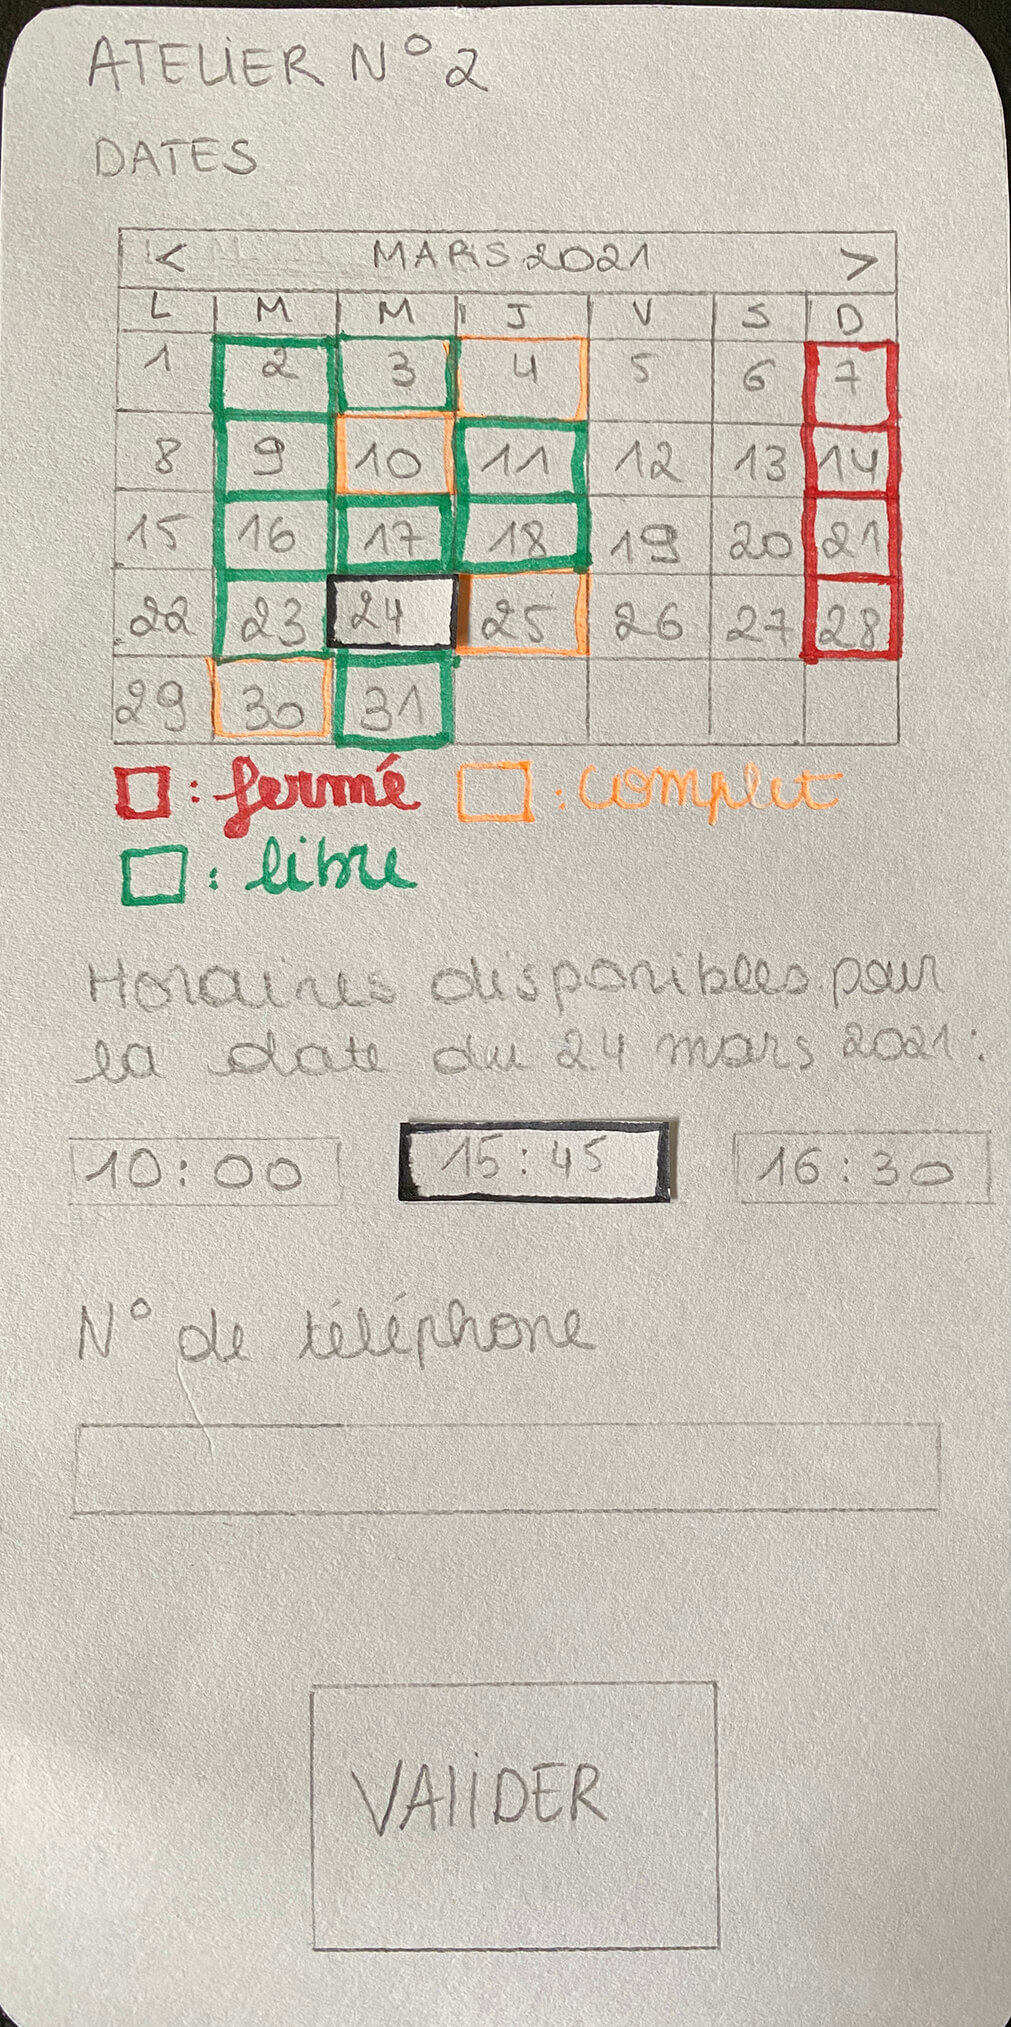 ATELIER N° 2
DATES
< MARS 2021 >
L M M J V S D
1 2 3 4 5 6 7
8 9 10 11 12 13 14
15 16 17 18 19 20 21
22 23 24 25 26 27 28
29 30 31
: fermé : complet
: libre
Horaires disponibles pour
la date du 24 mars 2021 :
10:00 15:45 16:30
N° de téléphone
VALIDER